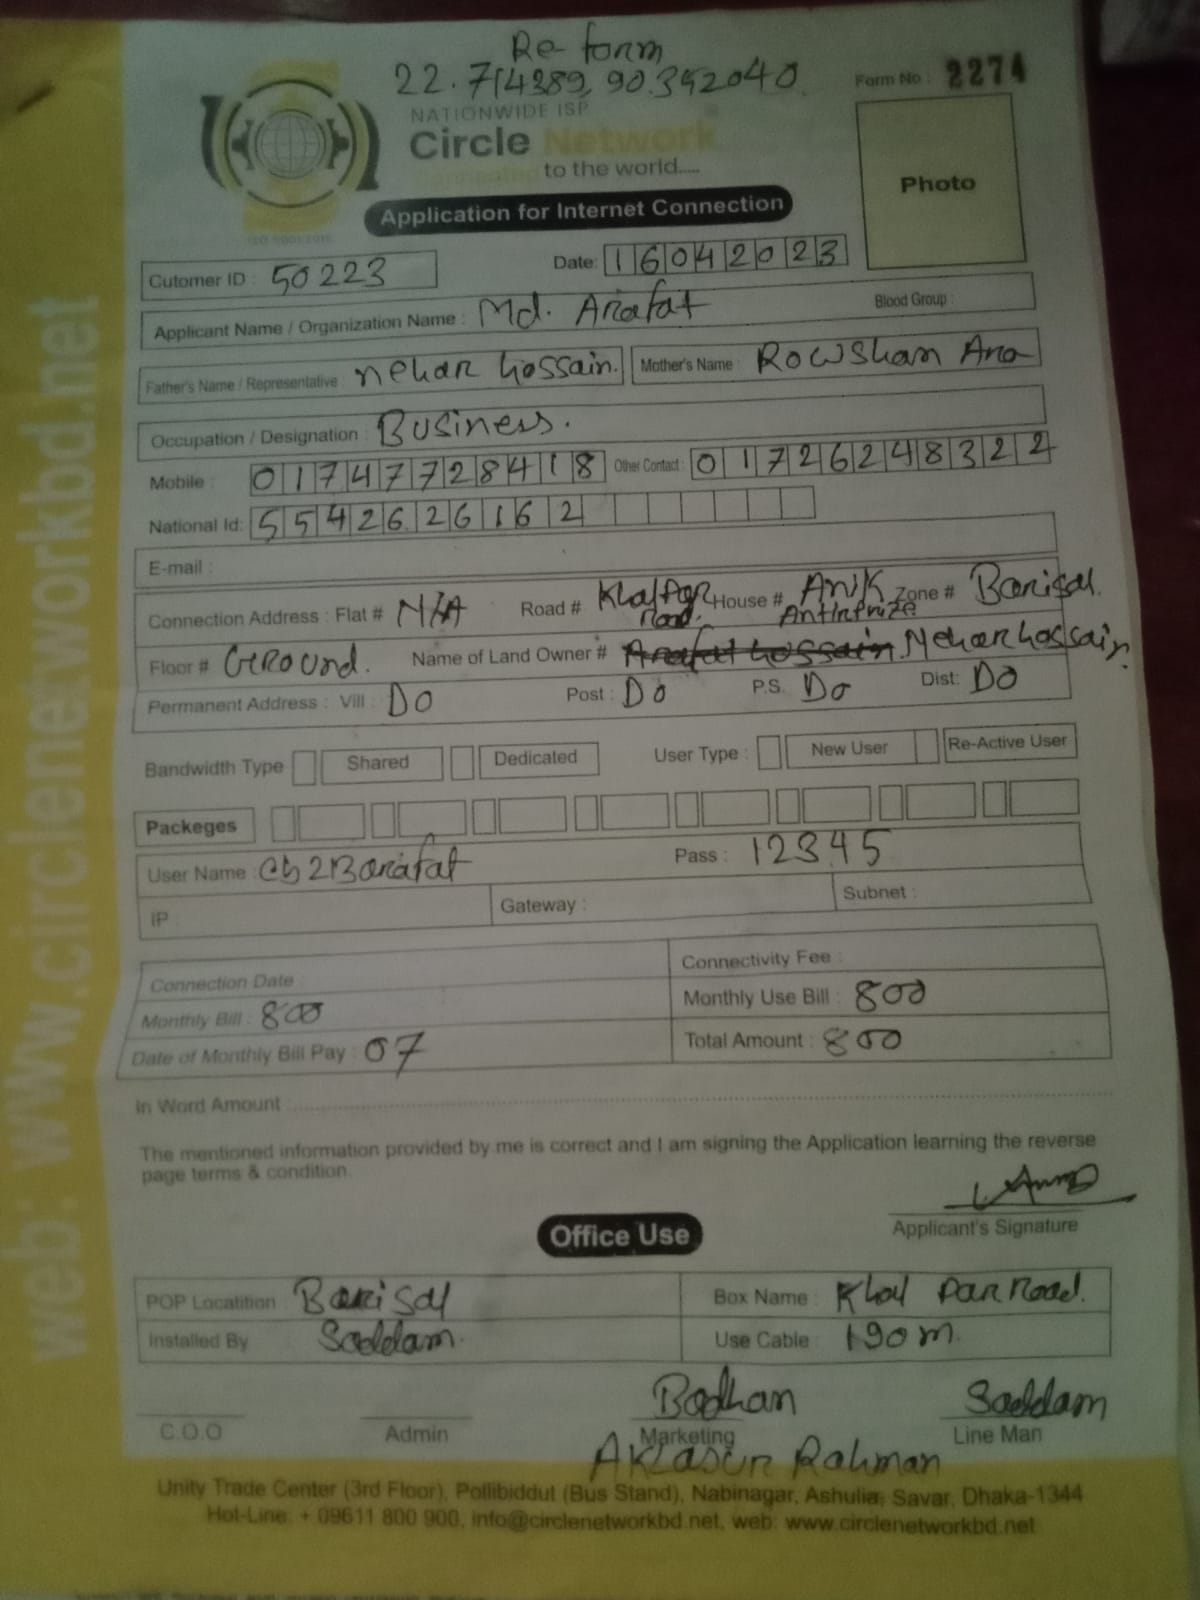 Re-form
22.714389, 90.352040
Form No : 2274
NATIONWIDE ISP
Circle Network
to the world.....
Photo
Application for Internet Connection
Cutomer ID : 50223
Date: 16042023
Applicant Name / Organization Name : Md. Arafat
Blood Group :
Father's Name / Representative : nehar hossain.
Mother's Name : Rowshan Ara
Occupation / Designation : Business.
Mobile : 01747728418 Other Contact : 01726248322
National Id: 5542626162
E-mail :
Connection Address : Flat # N/A Road # Road. House # Anik Zone # Barisal.
Floor # Ground. Name of Land Owner # Nehar hossain.
Permanent Address : Vill : Do Post : Do P.S. Do Dist: Do
Bandwidth Type Shared Dedicated User Type : New User Re-Active User
Packeges
User Name : Pass : 12345
IP : Gateway : Subnet :
Connection Date :
Connectivity Fee :
Monthly Bill : 800
Monthly Use Bill : 800
Date of Monthly Bill Pay : 07
Total Amount : 800
In Word Amount :
The mentioned information provided by me is correct and I am signing the Application learning the reverse
page terms & condition.
Applicant's Signature
Office Use
POP Locatition : Barisal
Box Name : Khal Par Road.
Installed By Saddam.
Use Cable : 190m.
Bodhan
Saddam
C.O.O Admin Marketing Line Man
Rahman
Unity Trade Center (3rd Floor), Pollibiddut (Bus Stand), Nabinagar, Ashulia, Savar, Dhaka-1344
Hot-Line: + 09611 800 900, info@circlenetworkbd.net, web: www.circlenetworkbd.net
web: www.circlenetworkbd.net